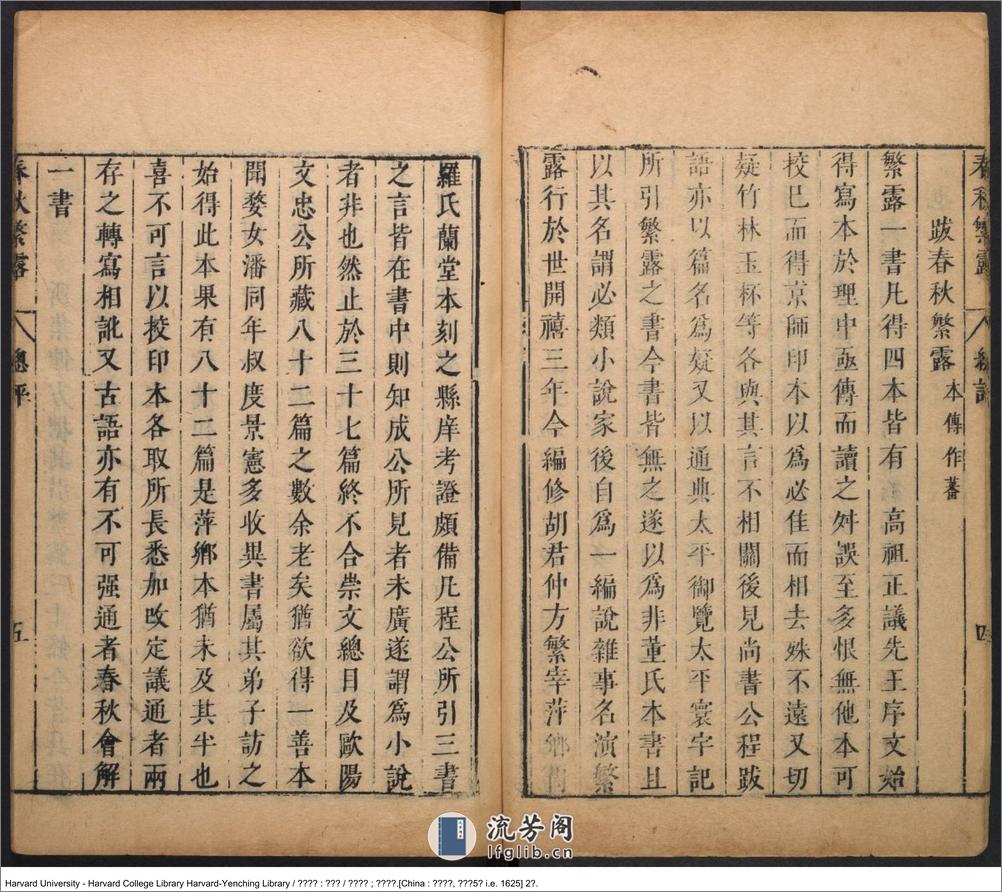 春秋繁露
四
跋春秋繁露 本傳作蕃
繁露一書凡得四本皆有 高祖正議先王序文始
得寫本於理中亟傳而讀之舛誤至多恨無他本可
校巳而得京師印本以為必佳而相去殊不遠又切
疑竹林玉杯等各與其言不相關後見尚書公程跋
語亦以篇名為疑又以通典太平御覽太平寰宇記
所引繁露之書今書皆無之遂以為非董氏本書且
以其名謂必類小說家後自為一編說雜事名演繁
露行於世開禧三年今編修胡君仲方繁宰萍鄉
羅氏蘭堂本刻之縣庠考證頗備凡程公所引三書
之言皆在書中則知成公所見者未廣遂謂為小說
者非也然止於三十七篇終不合崇文總目及歐陽
文忠公所藏八十二篇之數余老矣猶欲得一善本
聞婺女潘同年叔度景憲多收異書屬其弟子訪之
始得此本果有八十二篇是萍鄉本猶未及其半也
喜不可言以挍印本各取所長悉加改定議通者兩
存之轉寫相訛又古語亦有不可强通者春秋會解
一書
春秋繁露 總評
五
流芳阁
lfglib.cn
Harvard University - Harvard College Library Harvard-Yenching Library / ???? : ??? / ???? ; ????.[China : ????, ???5? i.e. 1625] 2?.